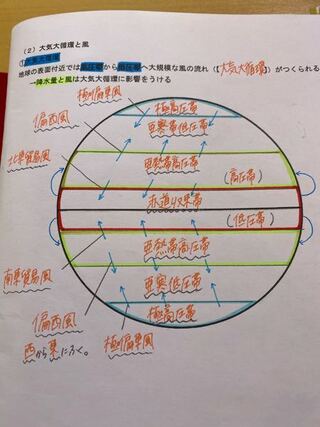 （2）大気大循環と風
①大気大循環
地球の表面付近では高圧帯から低圧帯へ大規模な風の流れ（【大気大循環】）がつくられる
→降水量と風は大気大循環に影響をうける
極偏東風
極高圧帯
偏西風
亜寒帯低圧帯
亜熱帯高圧帯
北東貿易風
（高圧帯）
赤道収束帯
（低圧帯）
亜熱帯高圧帯
南東貿易風
亜寒低圧帯
偏西風
極高圧帯
西から東にふく。
極偏東風